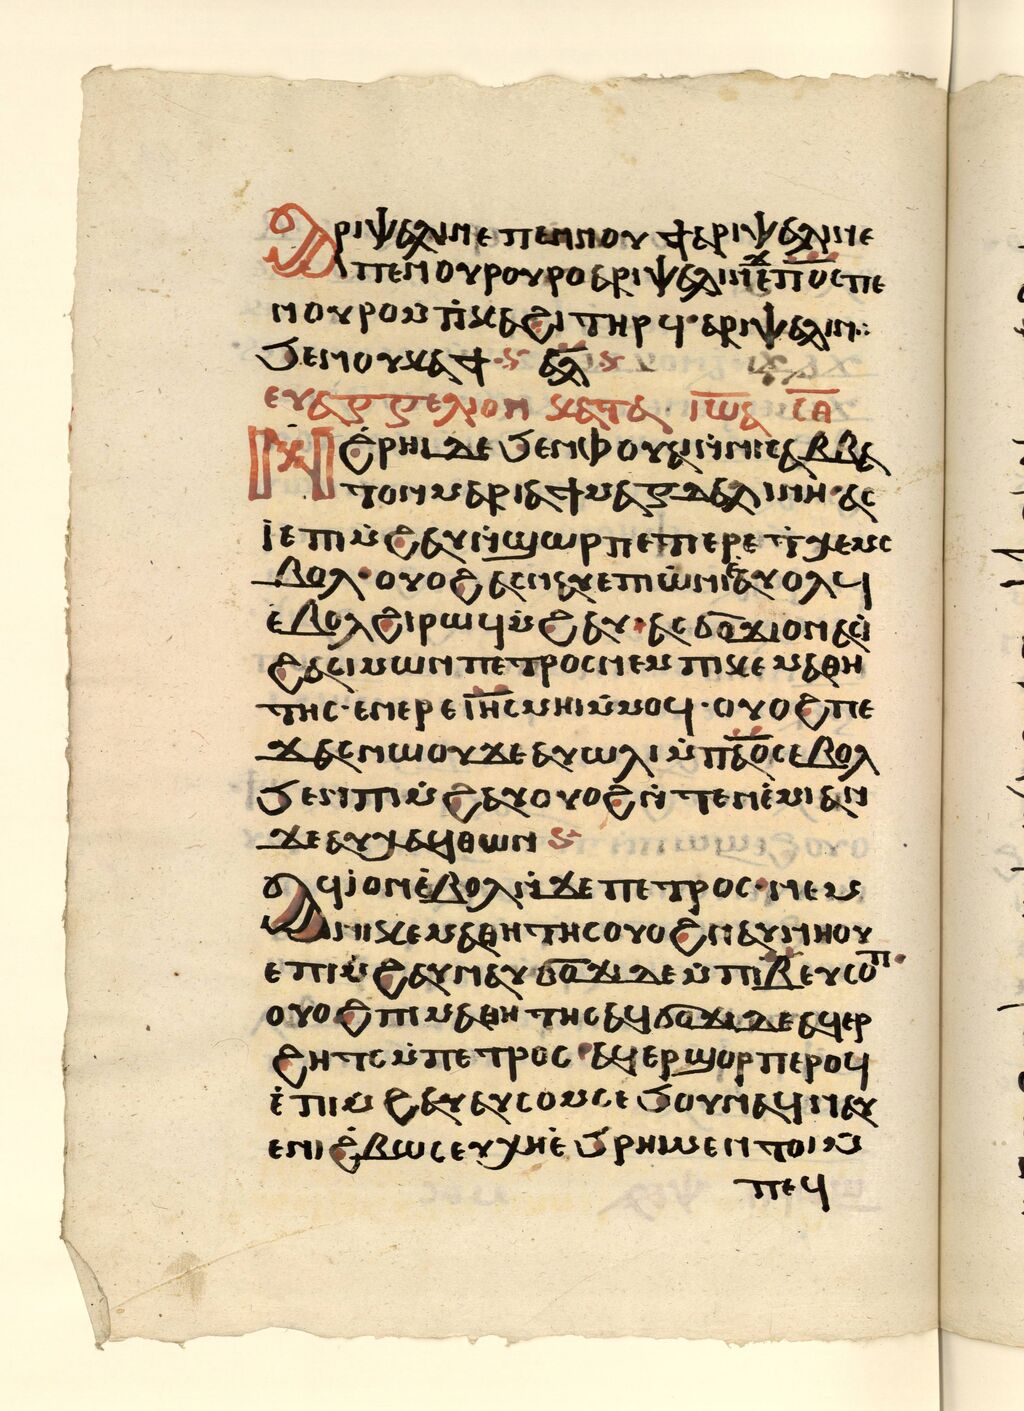 Ⲁⲣⲓⲯⲁⲗⲓⲛ ⲉⲡⲉⲛⲛⲟⲩϯ ⲁⲣⲓⲯⲁⲗⲓⲛ ⲉ
ⲡⲉⲛⲟⲩⲣⲟ ⲩⲣⲟ ⲁⲣⲓⲯⲁⲗⲓⲛ ϫⲉ ⲡ̅ⲟ̅ⲥ̅ ⲡⲉ
ⲛⲟⲩⲣⲟ ⲙ̀ⲡ̀ⲕⲁϩⲓ ⲧⲏⲣϥ · ⲁⲣⲓⲯⲁⲗⲓⲛ ⁘
ϧⲉⲛⲟⲩⲕⲁϯ · ⲁ̅ⲗ̅
ⲉⲩⲁⲅⲅⲉⲗⲓⲟⲛ ⲕⲁⲧⲁ ⲓ̅ⲱ̅ⲁ ⲓ̅ⲁ̅
Ⲛ̀ϩⲣⲏⲓ ⲇⲉ ϧⲉⲛ ⲫⲟⲩⲁⲓ ⲛ̀ⲛⲓⲥⲁⲃⲃⲁ
ⲧⲟⲛ ⲙⲁⲣⲓⲁ ϯⲙⲁⲅⲇⲁⲗⲓⲛⲏ · ⲁⲥ
ⲓ̀ ⲉⲡⲓⲙ̀ϩⲁⲩ ⲛ̀ϣⲱⲣⲡ ⲉⲧⲓ ⲉⲣⲉ ⲡ̀ⲭⲉⲙⲥ
ⲃⲟⲗ · ⲟⲩⲟϩ ⲁⲥⲛⲁⲩ ⲉⲡⲓⲱ̀ⲛⲓ ⲉⲁⲩⲟⲗϥ
ⲉ̀ⲃⲟⲗ ϩⲓⲣⲱϥ ⲙ̀ⲡⲓⲙ̀ϩⲁⲩ · ⲁⲥϭⲟϫⲓ ⲟⲩⲛ ⲁⲥⲓ̀
ϩⲁ ⲥⲓⲙⲱⲛ ⲡⲉⲧⲣⲟⲥ ⲛⲉⲙ ⲡⲓⲕⲉⲙⲁⲑⲏ
ⲧⲏⲥ · ⲉⲛⲁⲣⲉ ⲓ̅ⲏ̅ⲥ̅ ⲙⲉⲓ ⲙ̀ⲙⲟϥ · ⲟⲩⲟϩ ⲡⲉ
ϫⲁⲥ ⲛⲱⲟⲩ ϫⲉ ⲁⲩⲱⲗⲓ ⲙ̀ⲡⲁ̅ⲟ̅ⲥ̅ ⲉⲃⲟⲗ
ϧⲉⲛ ⲡⲓⲙ̀ϩⲁⲩ ⲟⲩⲟϩ ⲛ̀ⲧⲉⲛⲉ̀ⲙⲓ ⲁⲛ
ϫⲉ ⲁⲩⲭⲁϥ ⲑⲱⲛ
Ⲁϥⲓ̀ ⲟⲩⲛ ⲉ̀ⲃⲟⲗ ⲛ̀ϫⲉ ⲡⲉⲧⲣⲟⲥ · ⲛⲉⲙ
ⲡⲓⲕⲉⲙⲁⲑⲏⲧⲏⲥ ⲟⲩⲟϩ ⲛⲁⲩⲛⲏⲟⲩ
ⲉⲡⲓⲙ̀ϩⲁⲩ ⲛⲁⲩϭⲟϫⲓ ⲇⲉ ⲙ̀ⲡⲓⲃ ⲉⲩⲥⲟⲡ
ⲟⲩⲟϩ ⲡⲓⲙⲁⲑⲏⲧⲏⲥ ⲁϥϭⲟϫⲓ ⲇⲉ ⲁϥⲉⲣ
ϩⲏⲧⲥ ⲙ̀ⲡⲉⲧⲣⲟⲥ · ⲁϥⲉⲣϣⲟⲣⲡ ⲉⲣⲟϥ
ⲉ̀ⲡⲓⲙ̀ϩⲁⲩ ⲁϥⲥⲟⲙⲥ ⲉϧⲟⲩⲛ ⲁϥⲛⲁⲩ
ⲉⲛⲓϩ̀ⲃⲱⲥ ⲉⲩⲭⲏ ⲉ̀ϧⲣⲏⲓ ⲙⲉⲛⲧⲟⲓ ⲙ̀
ⲡⲉϥ